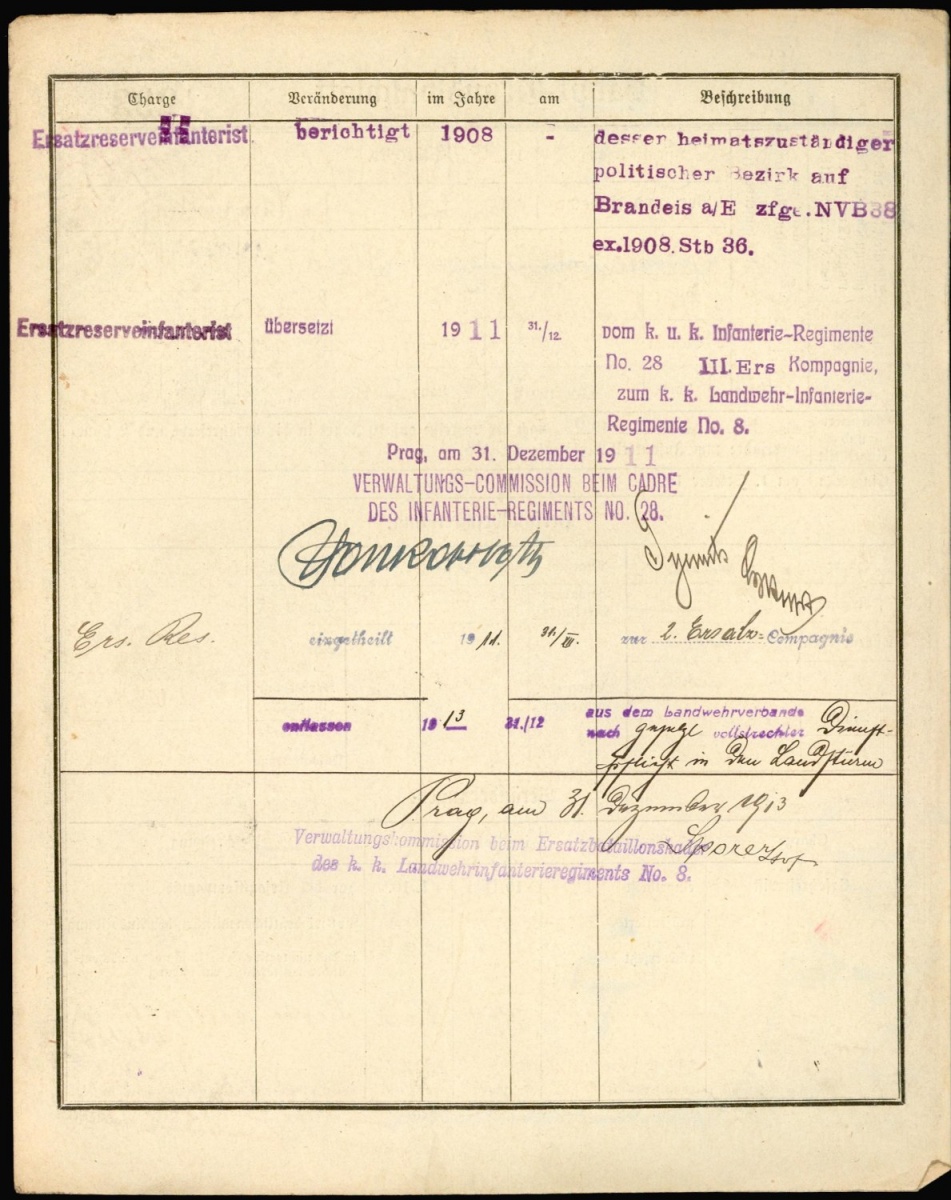 Charge Veränderung im Jahre am Beschreibung
Ersatzreserveinfanterist berichtigt 1908 - desser heimatszuständiger
politischer Bezirk auf
Brandeis a/E zfge. NVB 38
ex. 1908. Stb 36.
Ersatzreserveinfanterist übersetzt 1911 31./12. vom k. u. k. Infanterie-Regimente
No. 28 III. Ers Kompagnie,
zum k. k. Landwehr-Infanterie-
Regimente No. 8.
Prag, am 31. Dezember 1911
VERWALTUNGS-COMMISSION BEIM CADRE
DES INFANTERIE-REGIMENTS NO. 28.
Ers. Res. eingetheilt 1911. 31./XII. zur 2. Ersatz- Compagnie
entlassen 1913 31./12 aus dem Landwehrverbande
nach vollstreckter Dienst-
pflicht in den Landsturm
Prag, am 31. Dezember 1913
Verwaltungskommission beim Ersatzbataillonskader
des k. k. Landwehrinfanterieregiments No. 8.